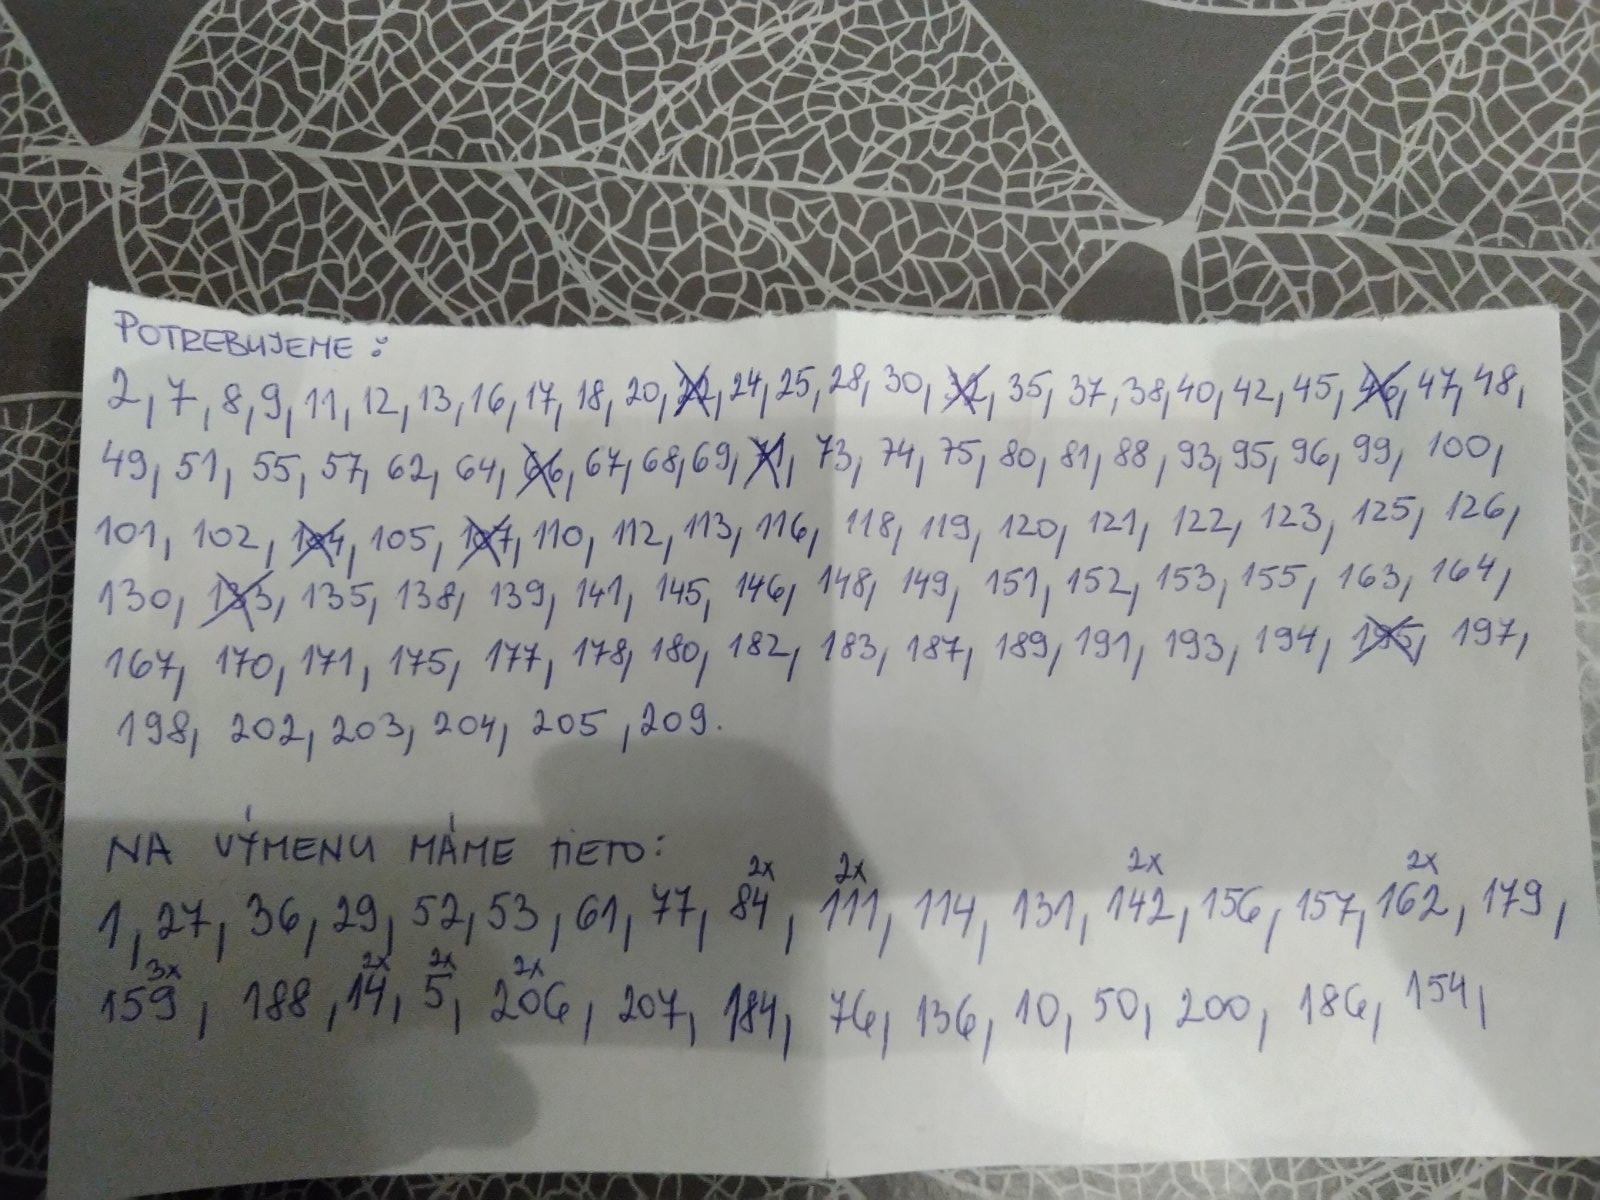 POTREBUJEME:
2, 7, 8, 9, 11, 12, 13, 16, 17, 18, 20, 22, 24, 25, 28, 30, 32, 35, 37, 38, 40, 42, 45, 46, 47, 48,
49, 51, 55, 57, 62, 64, 66, 67, 68, 69, 71, 73, 74, 75, 80, 81, 88, 93, 95, 96, 99, 100,
101, 102, 104, 105, 107, 110, 112, 113, 116, 118, 119, 120, 121, 122, 123, 125, 126,
130, 133, 135, 138, 139, 141, 145, 146, 148, 149, 151, 152, 153, 155, 163, 164,
167, 170, 171, 175, 177, 178, 180, 182, 183, 187, 189, 191, 193, 194, 195, 197,
198, 202, 203, 204, 205, 209.
NA VÝMENU MÁME TIETO:
1, 27, 36, 29, 52, 53, 61, 77, 84 2x, 111 2x, 114, 131, 142 2x, 156, 157, 162 2x, 179,
159 3x, 188, 14 2x, 5 2x, 206 2x, 207, 184, 76, 136, 10, 50, 200, 186, 154,